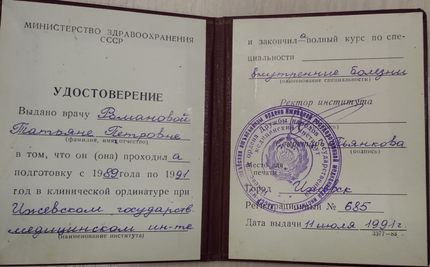 МИНИСТЕРСТВО ЗДРАВООХРАНЕНИЯ
СССР
УДОСТОВЕРЕНИЕ
Выдано врачу Романовой
Татьяне Петровне
(фамилия, имя, отчество)
в том, что он (она) проходил а
подготовку с 1989 года по 1991
год в клинической ординатуре при
Ижевском государств.
медицинском ин-те
(наименование института)
и закончил а полный курс по спе-
циальности
внутренние болезни
(наименование специальности)
Ректор института
(подпись)
Место для
печати
Город Ижевск
Регистрационный № 685
Дата выдачи 11 июля 1991 г.